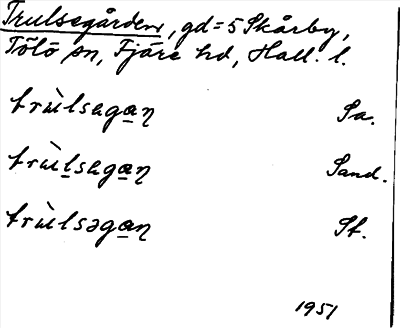 Trulsegården, gd = 5 Skårby,
Tölö sn, Fjäre hd, Hall. l.
trùlsaga̲ŋ Sa.
trùl̲sagæ̲ŋ Sand.
trùlsəga̲ŋ St.
1951